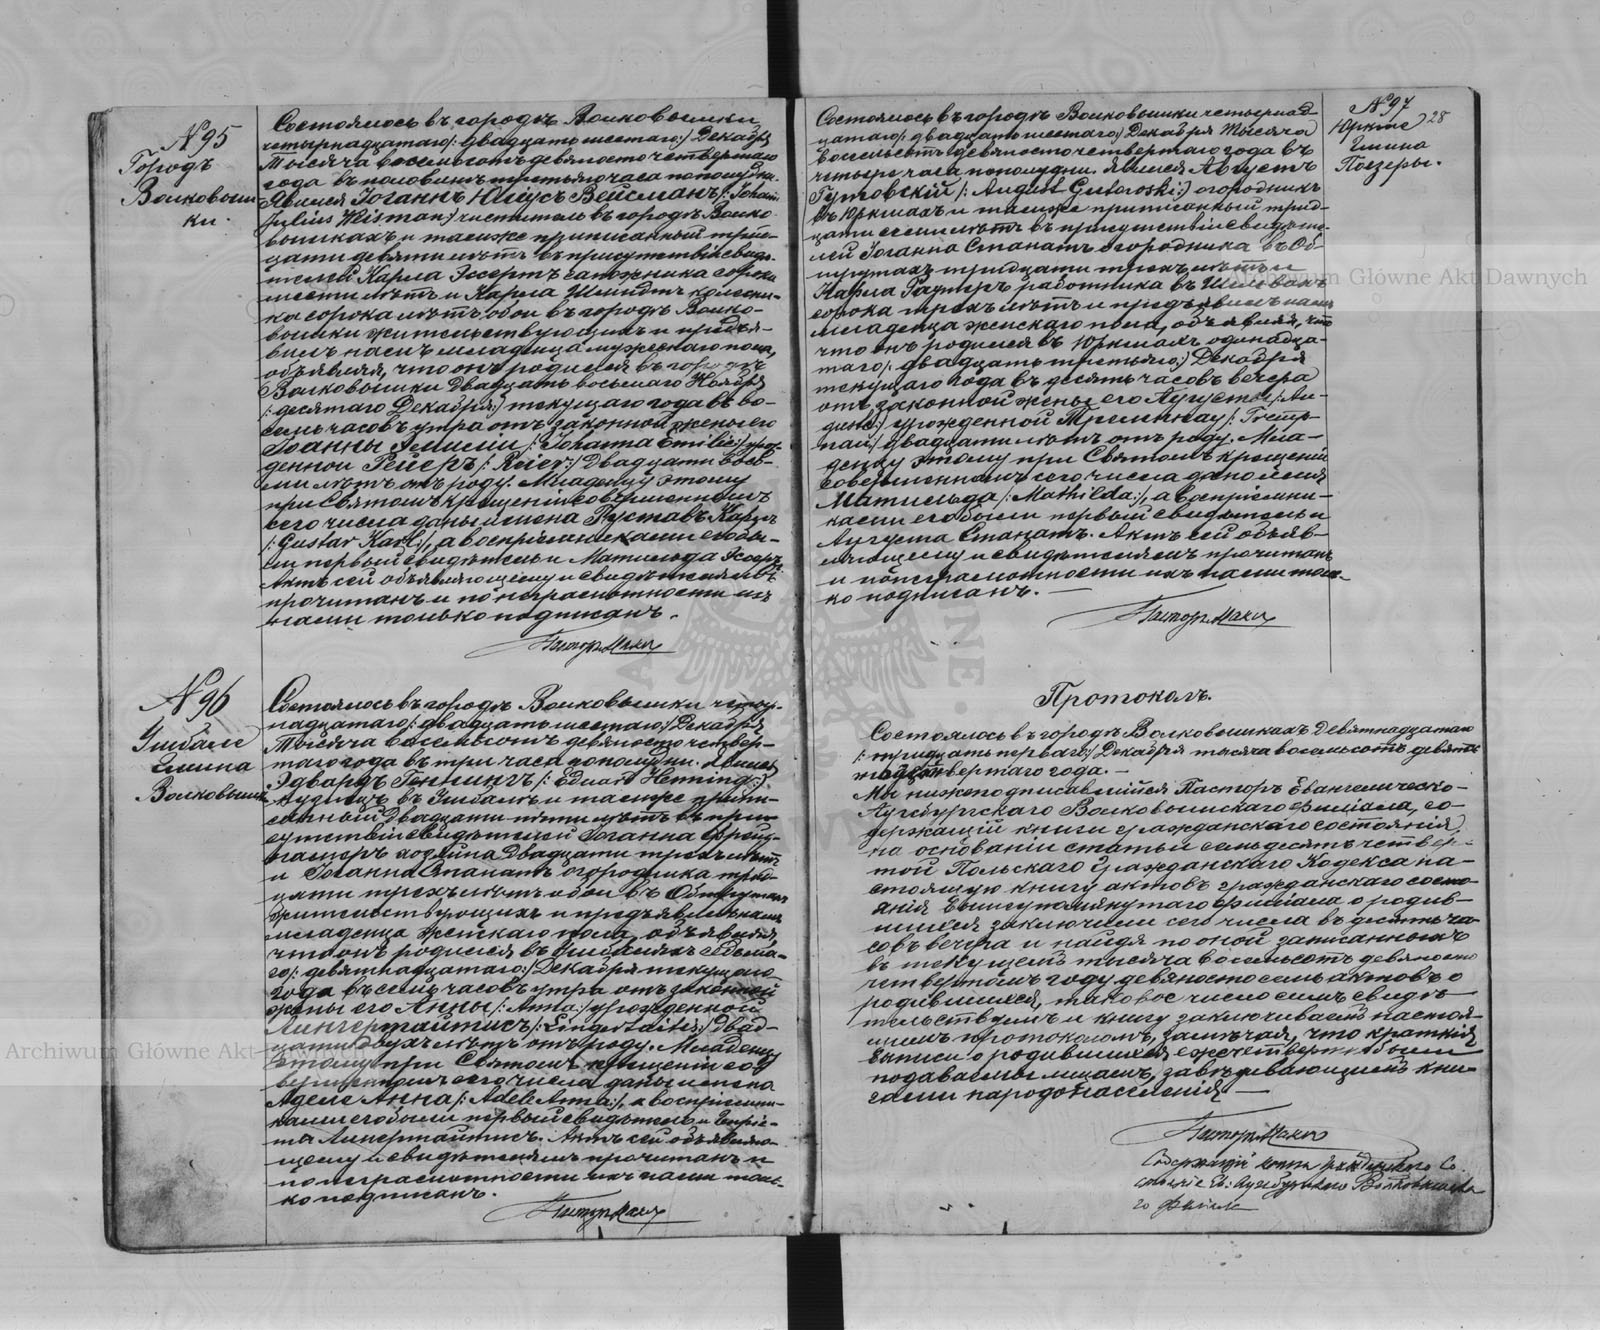 N 95
Городъ
Волковыш-
ки.
Состоялось въ городѣ Волковышки
четырнадцатаго /: двадцать шестаго :/ Декабря
Тысяча восемьсотъ девяносто четвертаго
года въ половинѣ третьяго часа пополудни.
Явился Іоганнъ Юліусъ Вейсманъ /: Johann
Julius Weisman :/ чиститель въ городѣ Волко-
вышкахъ и тамже приписанный трид-
цати девяти лѣтъ въ присутствіи свидѣ-
телей Карла Эссертъ сапожника сорока
шести лѣтъ и Карла Шмидтъ колесни-
ка сорока лѣтъ обои въ городѣ Волко-
вышки жительствующихъ и предъя-
вилъ намъ младенца мужескаго пола,
объявляя, что онъ родился въ городѣ
Волковышки Двадцать восьмаго Ноября
/: десятаго Декабря :/ текущаго года въ во-
семь часовъ утра отъ законной жены его
Іоанны Эмиліи /: Johanna Emilie :/ урож-
денной Рейеръ /: Reier :/ Двадцати вось-
ми лѣтъ отъ роду. Младенцу этому
при Святомъ крещеніи совершенномъ
сего числа даны имена Густавъ Карлъ
/: Gustav Karl :/, а воспріемниками его бы-
ли первый свидѣтель и Матильда Эссертъ.
Актъ сей объявляющему и свидѣтелямъ
прочитанъ и по неграмотности ихъ
нами только подписанъ.
Пасторъ Махи
N 96
Гмина
Волковышки
Состоялось въ городѣ Волковышки четыр-
надцатаго /: двадцать шестаго :/ Декабря
Тысяча восемьсотъ девяносто четвер-
таго года въ три часа пополудни. Явился
Эдвардъ Геннингъ /: Eduard Henning :/
санный Двадцати пяти лѣтъ въ при-
сутствіи свидѣтелей Іоганна
хозяина Двадцати трехъ лѣтъ
и Іоганна Станатъ огородника трид-
цати трехъ лѣтъ обои въ
жительствующихъ и предъявилъ намъ
младенца женскаго пола, объявляя,
что онъ родился въ седьма-
го /: девятнадцатаго :/ Декабря текущаго
года въ семь часовъ утра отъ законной
жены его Анны /: Anna :/ урожденной
Лингертайтисъ /: Lingertaitis :/ Двад-
цати двухъ лѣтъ отъ роду. Младенцу
этому при Святомъ крещеніи со-
вершенномъ сего числа даны имена
Аделе Анна /: Adele Anna :/, а воспріемни-
ками его были первый свидѣтель и Генріе-
та Лингертайтисъ. Актъ сей объявляю-
щему и свидѣтелямъ прочитанъ и
по неграмотности ихъ нами толь-
ко подписанъ.
Пасторъ Махи
N 97
28
Юркше
Гмина
Поезеры.
Состоялось въ городѣ Волковышки четырнад-
цатаго /: двадцать шестаго :/ Декабря Тысяча
восемьсотъ девяносто четвертаго года въ
четыре часа пополудни. Явился Августъ
Гутовскій /: August Gutowski :/ огородникъ
въ Юркшахъ и тамже приписанный трид-
цати семи лѣтъ въ присутствіи свидѣте-
лей Іоганна Станатъ огородника въ Об-
шрутахъ тридцати трехъ лѣтъ и
Карла работника въ
сорока трехъ лѣтъ и предъявилъ намъ
младенца женскаго пола, объявляя, что
что онъ родился въ Юркшахъ одинадца-
таго /: двадцать третьяго :/ Декабря
текущаго года въ десять часовъ вечера
отъ законной жены его Аугусты /: Au-
guste :/ урожденной
двадцати лѣтъ отъ роду. Мла-
денцу этому при Святомъ крещеніи
совершенномъ сего числа дано имя
Матильда /: Mathilda :/, а воспріемни-
ками его были первый свидѣтель и
Аугуста Станатъ. Актъ сей объяв-
ляющему и свидѣтелямъ прочитанъ
и по неграмотности ихъ нами толь-
ко подписанъ.
Пасторъ Махи
Протоколъ.
Состоялось въ городѣ Волковышкахъ Девятнадцатаго
/: тридцать перваго :/ Декабря тысяча восемьсотъ девяносто
четвертаго года.
Мы нижеподписавшійся Пасторъ Евангелическо-
Аугсбургскаго Волковышскаго филіала, со-
держащій книги гражданскаго состоянія,
на основаніи статьи семьдесятъ четвер-
той Польскаго Гражданскаго Кодекса на-
стоящую книгу актовъ гражданскаго состо-
янія Вышеупомянутаго филіала о родив-
шихся заключили сего числа въ десять ча-
совъ вечера и найдя по оной записанныхъ
въ текущемъ тысяча восемьсотъ девяносто
четвертомъ году девяносто семь актовъ о
родившихся, таковое число симъ свидѣ-
тельствуемъ и книгу заключиваемъ настоя-
щимъ протоколомъ, замѣчая, что краткія
выписи о родившихся ежечетвертно были
подаваемы лицамъ, завѣдывающимъ кни-
гами народонаселенія
Пасторъ Махи
Содержащій книги Гражданскаго Со-
стояніе Ев: Аугсбургскаго Волковышска-
го филіала
Archiwum Główne Akt Dawnych
Archiwum Główne Akt Dawnych